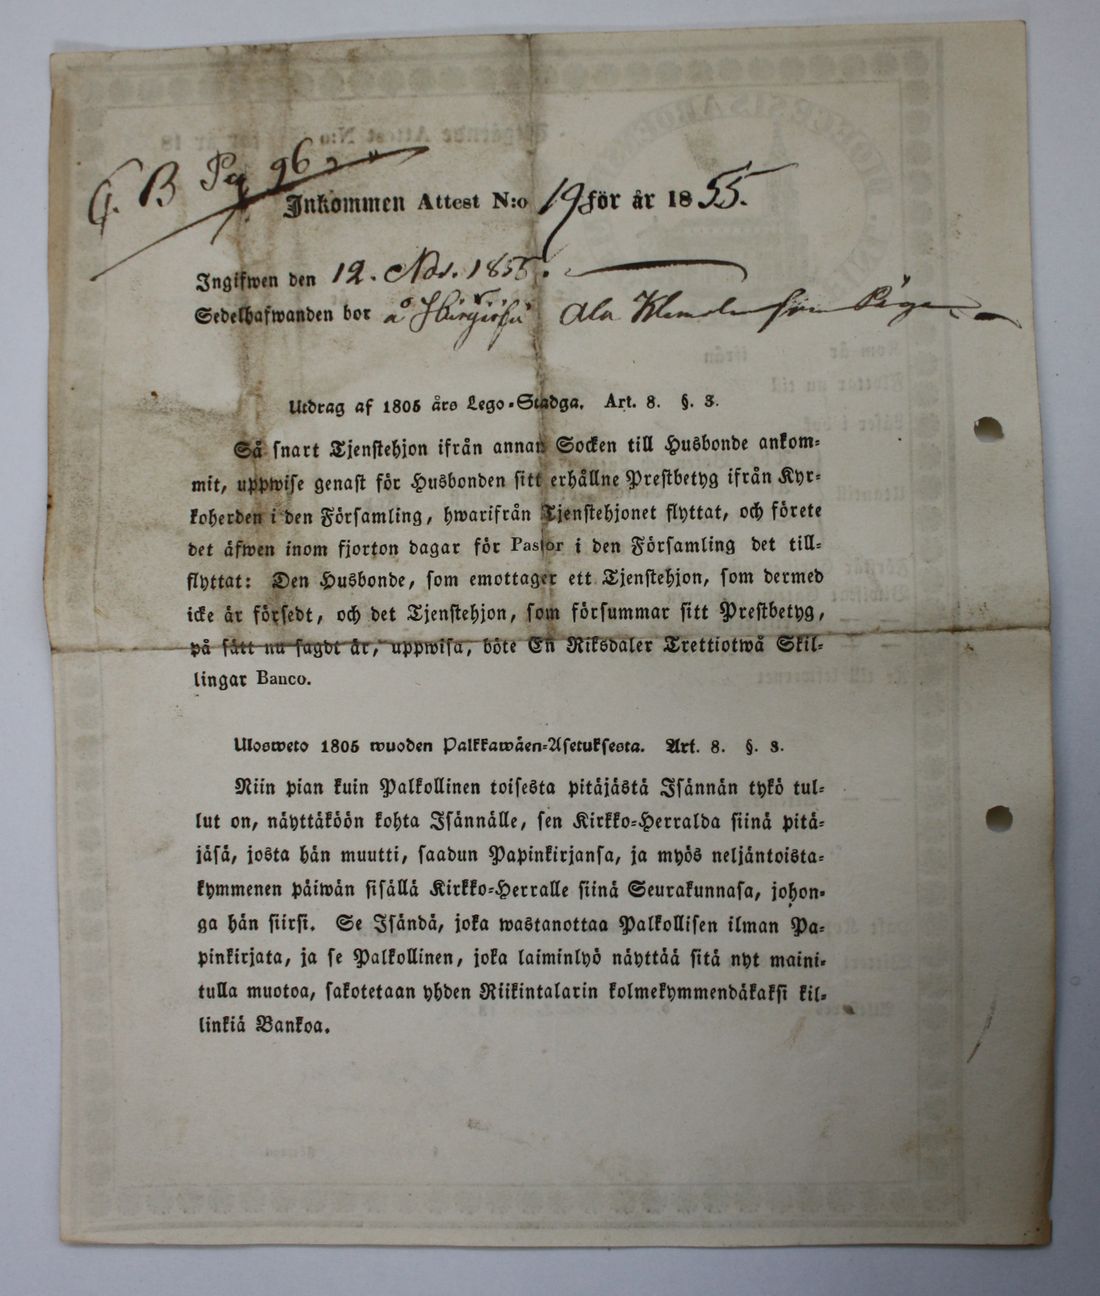 G. B Pg 96
Inkommen Attest N:o 19 för år 1855.
Ingifwen den 12. Nov. 1855.
Sedelhafwanden bor å Ala som Piga
Utdrag af 1805 års Lego-Stadga. Art. 8. §. 3.
Så snart Tjenstehjon ifrån annan Socken till Husbonde ankom-
mit, uppwise genast för Husbonden sitt erhållne Prestbetyg ifrån Kyr-
koherden i den Församling, hwarifrån Tjenstehjonet flyttat, och förete
det äfwen inom fjorton dagar för Pastor i den Församling det till-
flyttat: Den Husbonde, som emottager ett Tjenstehjon, som dermed
icke är försedt, och det Tjenstehjon, som försummar sitt Prestbetyg,
på sätt nu sagdt är, uppwisa, böte En Riksdaler Trettiotwå Skil-
lingar Banco.
Ulosweto 1805 wuoden Palkkawäen-Asetuksesta. Art. 8. §. 3.
Niin pian kuin Palkollinen toisesta pitäjästä Isännän tykö tul-
lut on, näyttäköön kohta Isännälle, sen Kirkko-Herralda siinä pitä-
jäsä, josta hän muutti, saadun Papinkirjansa, ja myös neljäntoista-
kymmenen päiwän sisällä Kirkko-Herralle siinä Seurakunnasa, johon-
ga hän siirsi. Se Isändä, joka wastanottaa Palkollisen ilman Pa-
pinkirjata, ja se Palkollinen, joka laiminlyö näyttää sitä nyt maini-
tulla muotoa, sakotetaan yhden Riikintalarin kolmekymmendäkaksi kil-
linkiä Bankoa.